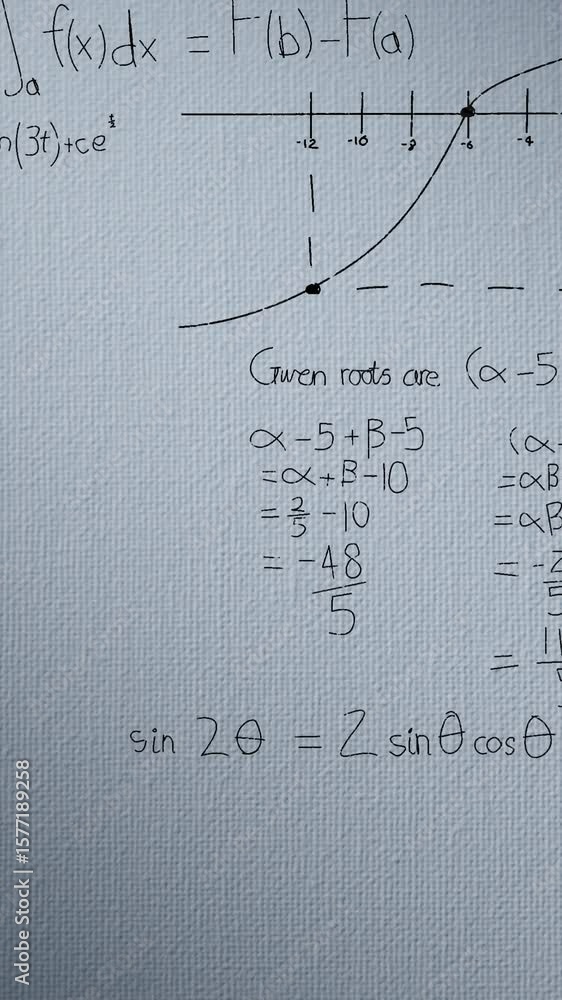 ∫a f(x)dx = F(b)-F(a)
n(3t)+ce^t/2
-12 -10 -8 -6 -4
Given roots are (α-5
α-5+β-5
=α+β-10
=2/5-10
=-48/5
(α-
=αβ
=αβ
sin 2θ = 2 sinθ cosθ
Adobe Stock | #1577189258